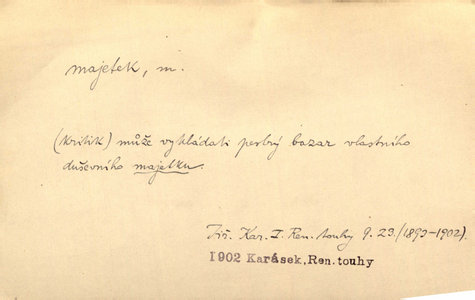 majetek, m.
(Kritik) může vykládati pestrý bazar vlastního
duševního majetku.
Jiř. Kar. I. Ren. touhy 9. 23. (1893–1902).
1902 Karásek, Ren. touhy